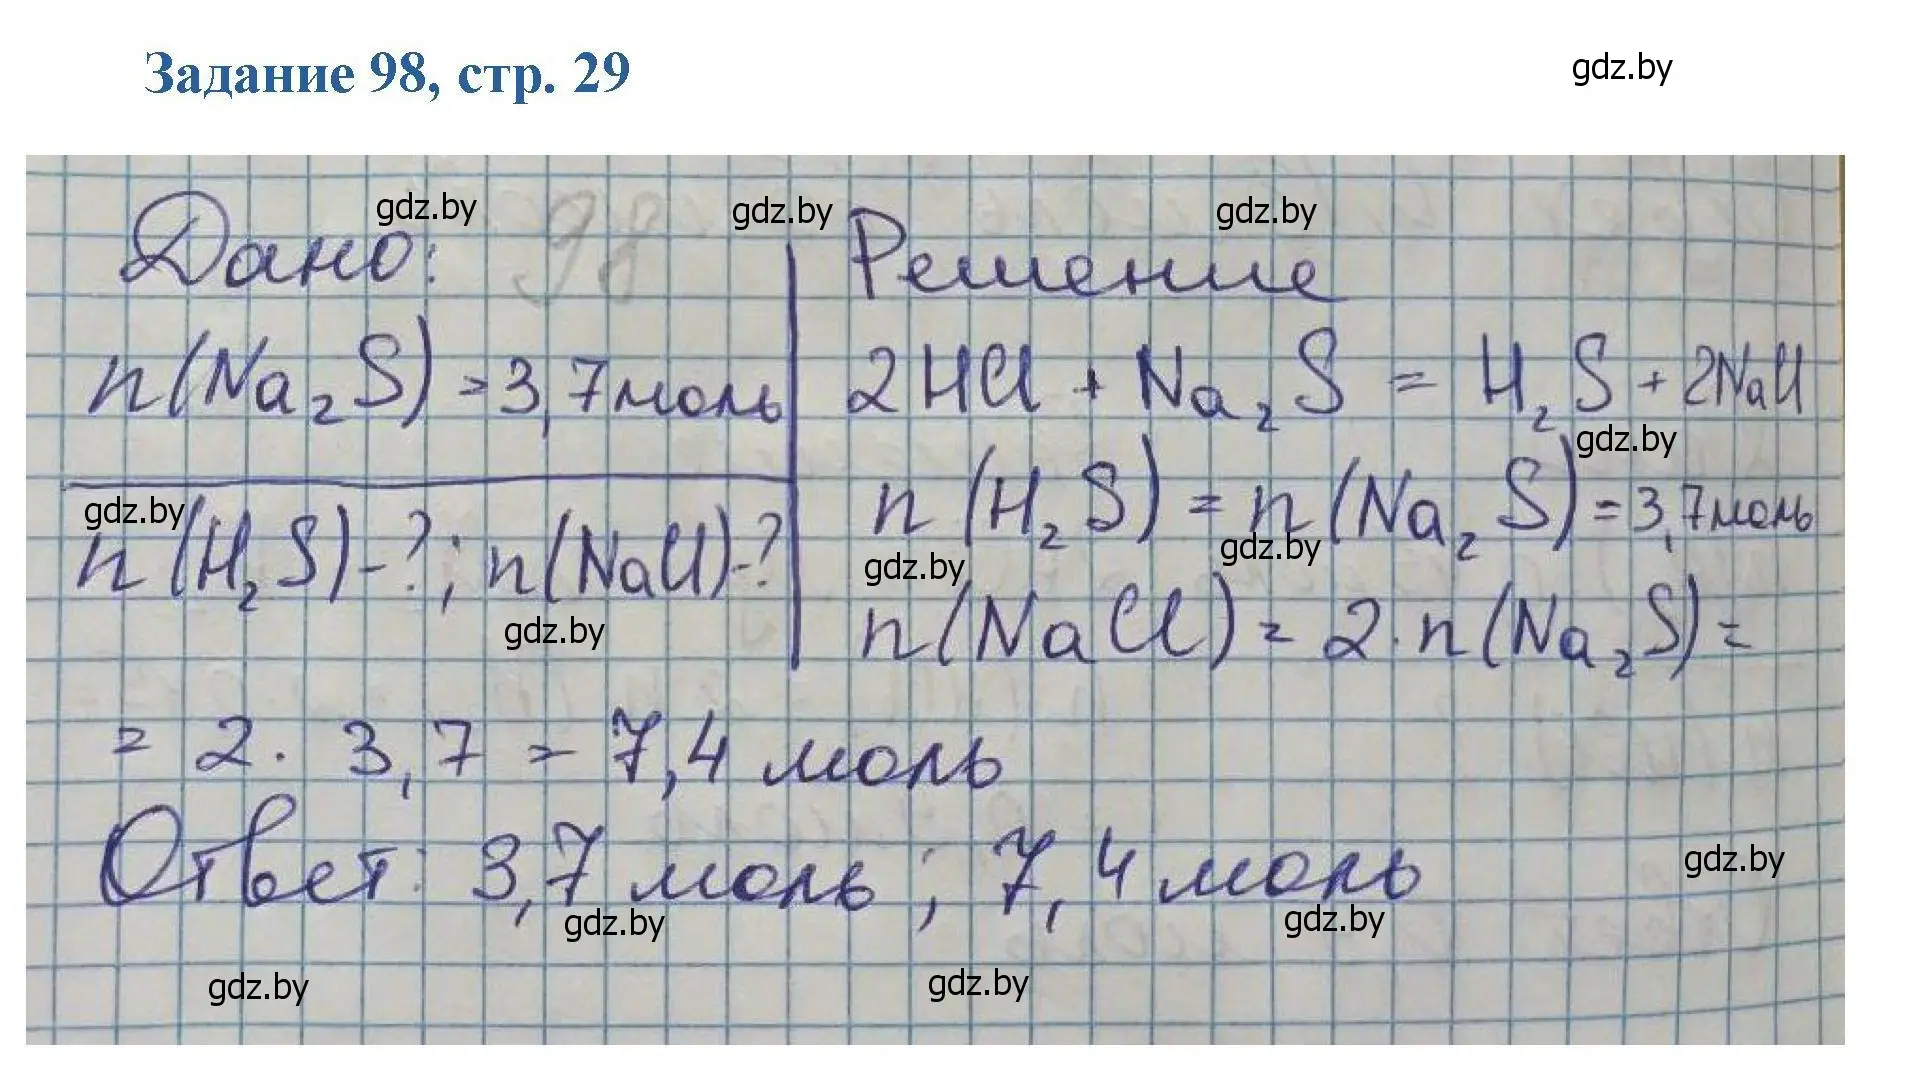 Задание 98, стр. 29
gdz.by
gdz.by
gdz.by
gdz.by
Дано: 98
n(Na₂S) = 3,7 моль
gdz.by
n(H₂S) - ?; n(NaCl) - ?
gdz.by
Решение
2HCl + Na₂S = H₂S + 2NaCl
gdz.by
n(H₂S) = n(Na₂S) = 3,7 моль
gdz.by
gdz.by
n(NaCl) = 2 · n(Na₂S) =
= 2 · 3,7 = 7,4 моль
Ответ: 3,7 моль; 7,4 моль
gdz.by
gdz.by
gdz.by
gdz.by
gdz.by